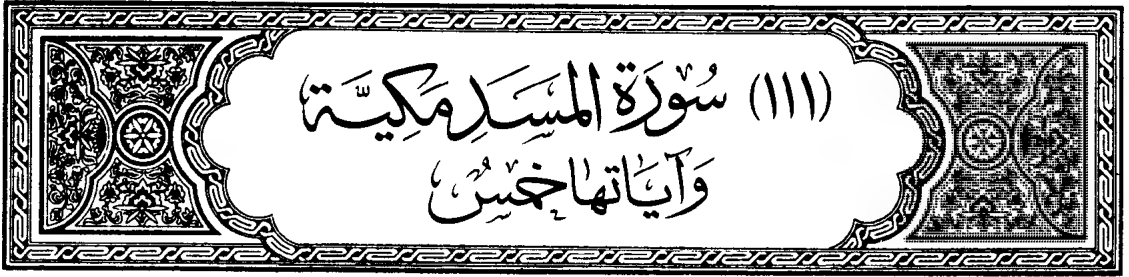 (١١١) سُورَةُ المَسَدِ مَكِيَّة
وَآيَاتُهَا خَمْسٌ